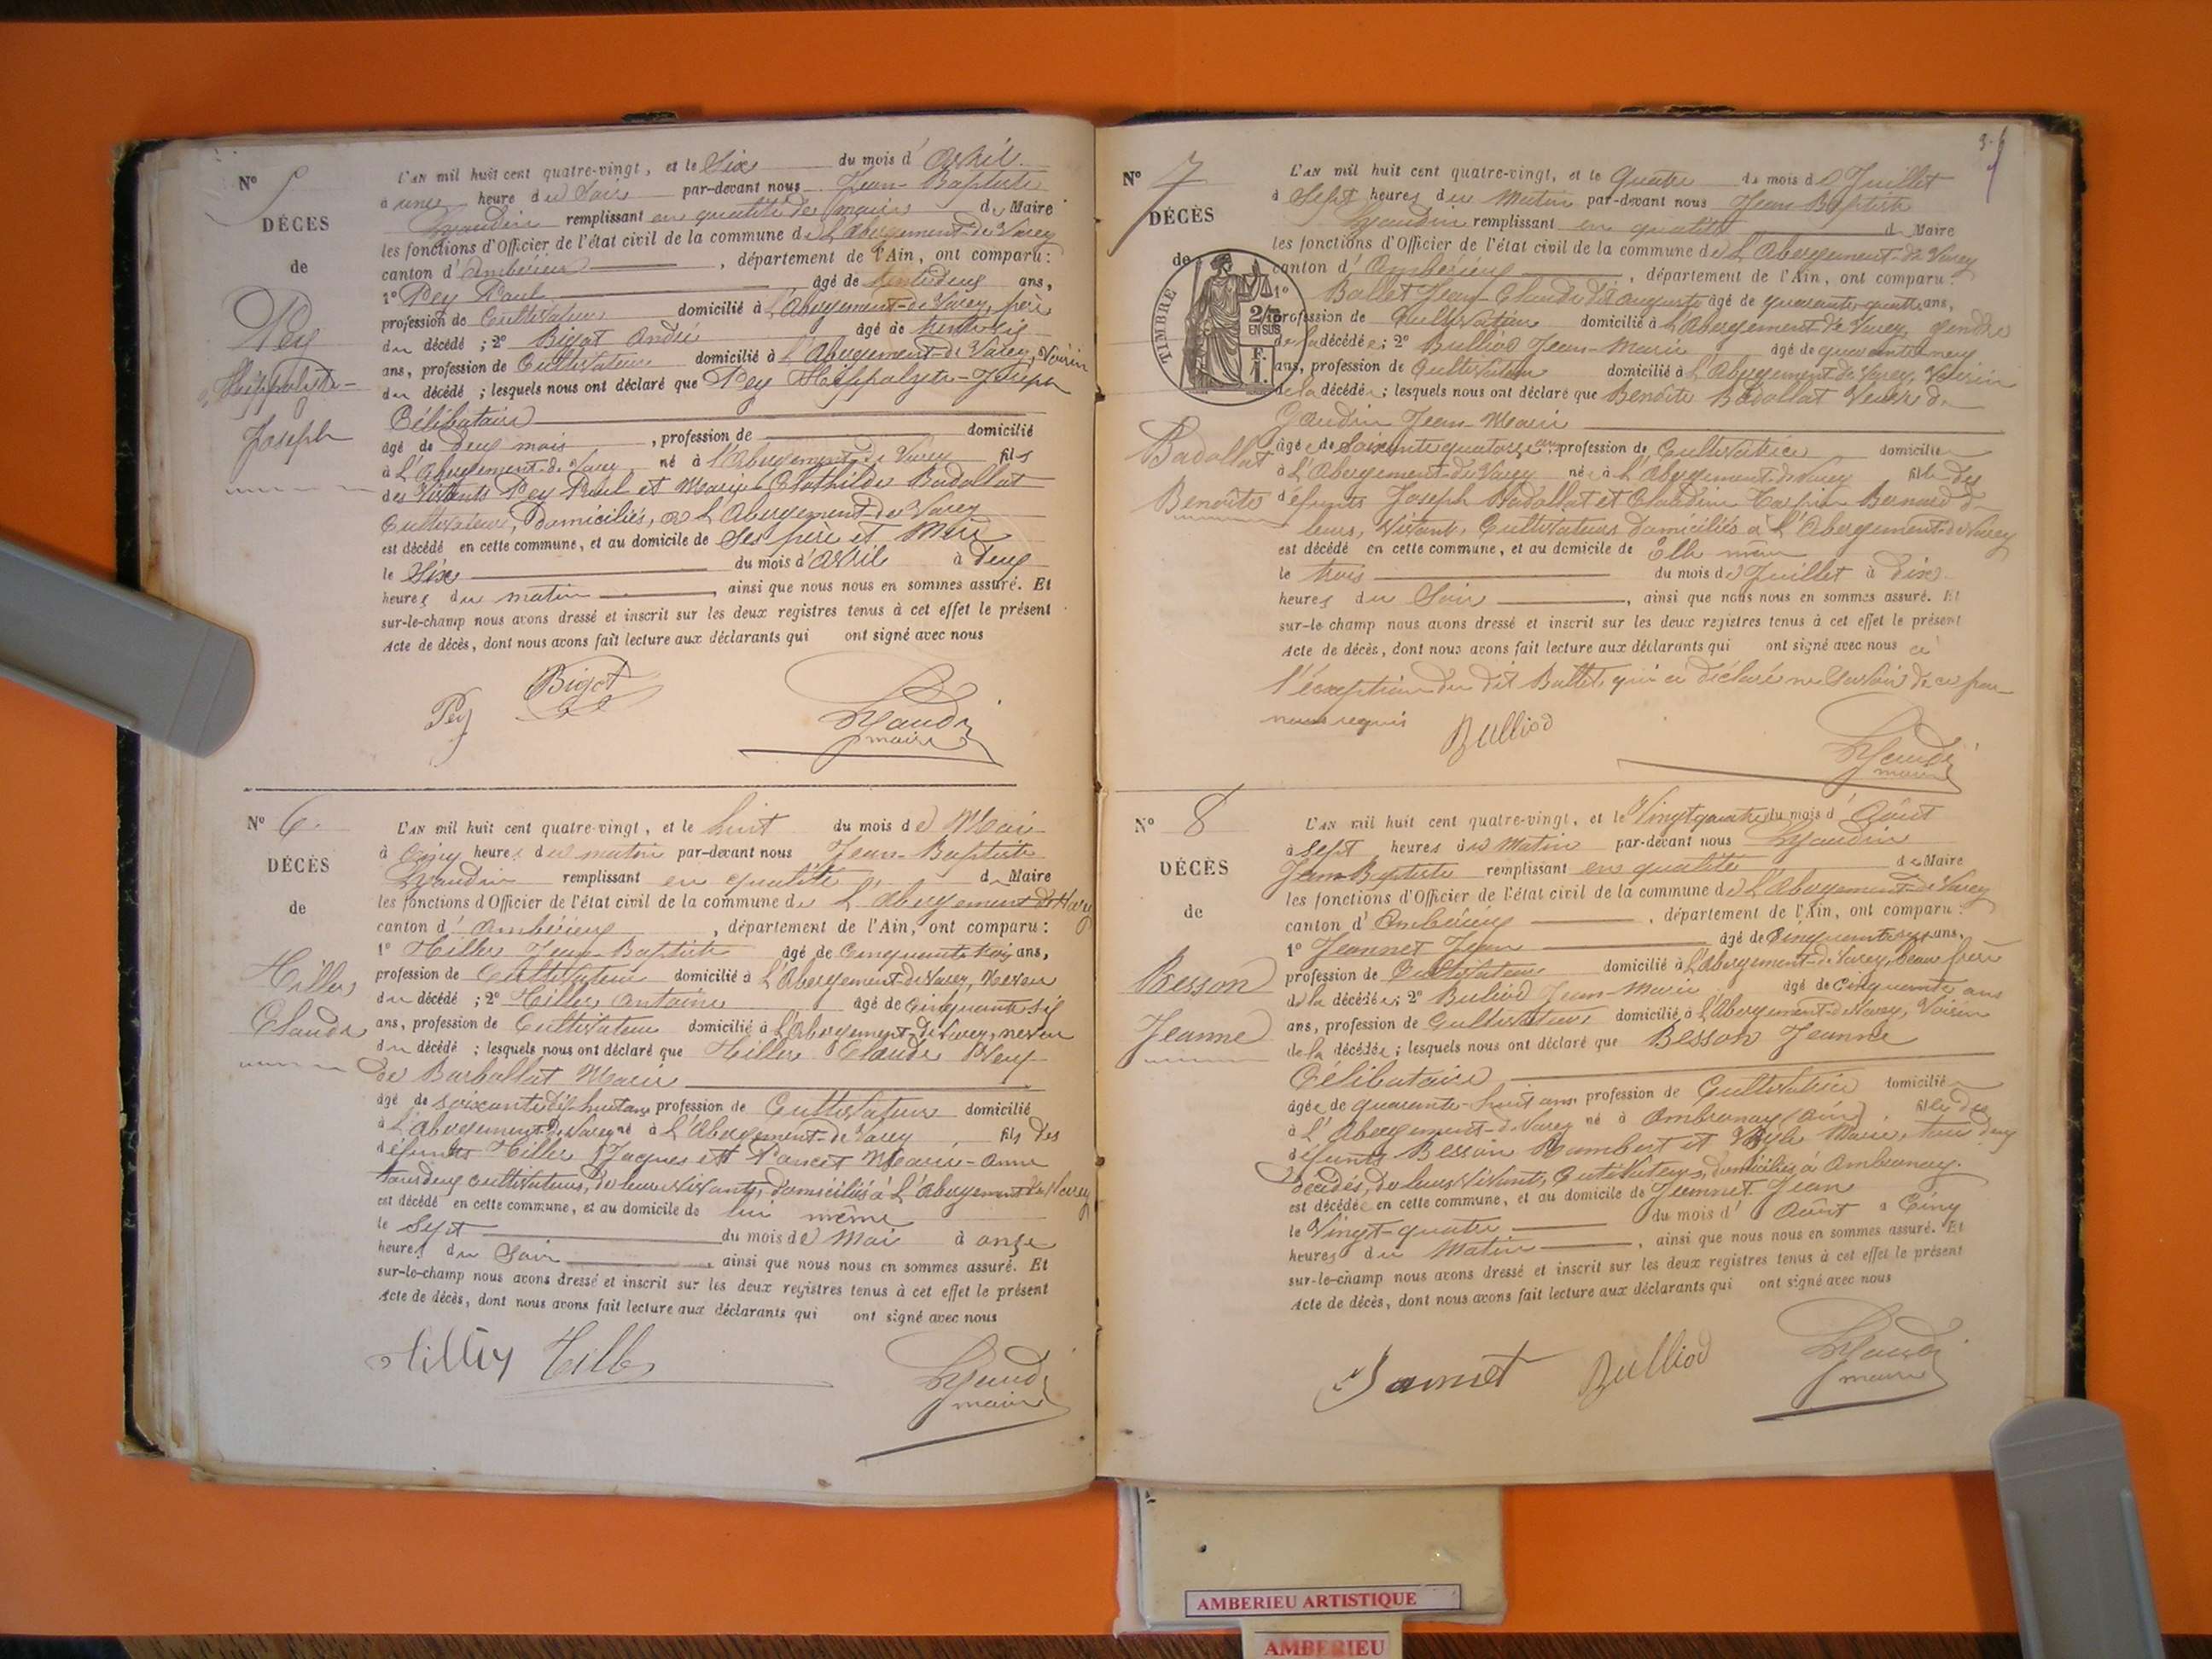 N° 5
DÉCÈS
de
Pey
Hippolyte-
Joseph
L'AN mil huit cent quatre-vingt, et le Six du mois d'Avril
à une heure du Soir par-devant nous Jean-Baptiste
Gaudin remplissant en qualité de maire de Maire
les fonctions d'Officier de l'état civil de la commune de L'Abergement-de-Varey
canton d'Ambérieux, département de l'Ain, ont comparu:
1° Pey Paul âgé de trente deux ans,
profession de Cultivateur domicilié à L'Abergement-de-Varey, père
du décédé ; 2° Bigot André âgé de trente six
ans, profession de Cultivateur domicilié à L'Abergement-de-Varey, Voisin
du décédé ; lesquels nous ont déclaré que Pey Hippolyte-Joseph
Célibataire
âgé de deux mois, profession de domicilié
à L'Abergement-de-Varey né à L'Abergement-de-Varey fils
des Vivants Pey Paul et Marie Clothilde Badollat
Cultivateurs, Domiciliés, à L'Abergement-de-Varey
est décédé en cette commune, et au domicile de Ses père et Mère
le Six du mois d'Avril à deux
heures du matin, ainsi que nous nous en sommes assuré. Et
sur-le-champ nous avons dressé et inscrit sur les deux registres tenus à cet effet le présent
Acte de décès, dont nous avons fait lecture aux déclarants qui ont signé avec nous
Pey Bigot Gaudin
maire
N° 6
DÉCÈS
de
Hiller
Claude
L'AN mil huit cent quatre-vingt, et le huit du mois de Mai
à Cinq heures du matin par-devant nous Jean-Baptiste
Gaudin remplissant en qualité de Maire
les fonctions d'Officier de l'état civil de la commune de L'Abergement-de-Varey
canton d'Ambérieux, département de l'Ain, ont comparu:
1° Hiller Jean-Baptiste âgé de Cinquante trois ans,
profession de Cultivateur domicilié à L'Abergement-de-Varey, Neveu
du décédé ; 2° Hiller Antoine âgé de Cinquante six
ans, profession de Cultivateur domicilié à L'Abergement-de-Varey, neveu
du décédé ; lesquels nous ont déclaré que Hiller Claude Veuf
de Barbollat Marie
âgé de soixante dix-huit ans profession de Cultivateur domicilié
à L'Abergement-de-Varey né à L'Abergement-de-Varey, fils des
défunts Hiller Jacques et Poncet Marie-Anne
tous deux cultivateurs, de leurs vivants, domiciliés à L'Abergement-de-Varey
est décédé en cette commune, et au domicile de lui même
le Sept du mois de Mai à onze
heures du Soir, ainsi que nous nous en sommes assuré. Et
sur-le-champ nous avons dressé et inscrit sur les deux registres tenus à cet effet le présent
Acte de décès, dont nous avons fait lecture aux déclarants qui ont signé avec nous
Hiller Hiller Gaudin
maire
N° 7
DÉCÈS
de
TIMBRE
2/10
EN SUS
F.
1.
Badollat
Benoîte
L'AN mil huit cent quatre-vingt, et le Quatre du mois de Juillet
à Sept heures du Matin par-devant nous Jean Baptiste
Gaudin remplissant en qualité de Maire
les fonctions d'Officier de l'état civil de la commune de L'Abergement-de-Varey
canton d'Ambérieux, département de l'Ain, ont comparu:
1° Ballet Jean-Claude dit Auguste âgé de quarante quatre ans,
profession de Cultivateur domicilié à L'Abergement de Varey, gendre
de la décédée ; 2° Bulliod Jean-Marie âgé de quarante neuf
ans, profession de Cultivateur domicilié à L'Abergement de Varey, Voisin
de la décédée ; lesquels nous ont déclaré que Benoîte Badollat Veuve de
Gaudin Jean Marie
âgée de Soixante quatorze ans profession de Cultivatrice domiciliée
à L'Abergement-de-Varey née à L'Abergement-de-Varey fille des
défunts Joseph Badollat et Claudine Bernard de
leurs, Vivant, Cultivateurs domiciliés à L'Abergement-de-Varey
est décédé en cette commune, et au domicile de Elle même
le trois du mois de Juillet à dix
heures du Soir, ainsi que nous nous en sommes assuré. Et
sur-le-champ nous avons dressé et inscrit sur les deux registres tenus à cet effet le présent
Acte de décès, dont nous avons fait lecture aux déclarants qui ont signé avec nous à
l'exception du dit Ballet qui a déclaré ne Savoir de ce par
nous requis Bulliod Gaudin
maire
N° 8
DÉCÈS
de
Besson
Jeanne
L'AN mil huit cent quatre-vingt, et le Vingt quatre du mois d'Août
à Sept heures du Matin par-devant nous Gaudin
Jean Baptiste remplissant en qualité de Maire
les fonctions d'Officier de l'état civil de la commune de L'Abergement-de-Varey
canton d'Ambérieux, département de l'Ain, ont comparu:
1° Jeannet Jean âgé de Cinquante ans,
profession de Cultivateur domicilié à L'Abergement-de-Varey, beau frère
de la décédée ; 2° Buliod Jean-Marie âgé de Cinquante ans
ans, profession de Cultivateur domicilié à L'Abergement-de-Varey, Voisin
de la décédée ; lesquels nous ont déclaré que Besson Jeanne
Célibataire
âgée de quarante-huit ans profession de Cultivatrice domiciliée
à L'Abergement-de-Varey né à Ambronay (Ain), fille des
défunts Besson Rambert et Marie, tous deux
décédés, de leurs Vivant, Cultivateurs, domiciliés à Ambronay.
est décédée en cette commune, et au domicile de Jeannet Jean
le Vingt-quatre du mois d'Août à Cinq
heures du Matin, ainsi que nous nous en sommes assuré. Et
sur-le-champ nous avons dressé et inscrit sur les deux registres tenus à cet effet le présent
Acte de décès, dont nous avons fait lecture aux déclarants qui ont signé avec nous
Jannet Bulliod Gaudin
maire
AMBERIEU ARTISTIQUE
AMBERIEU